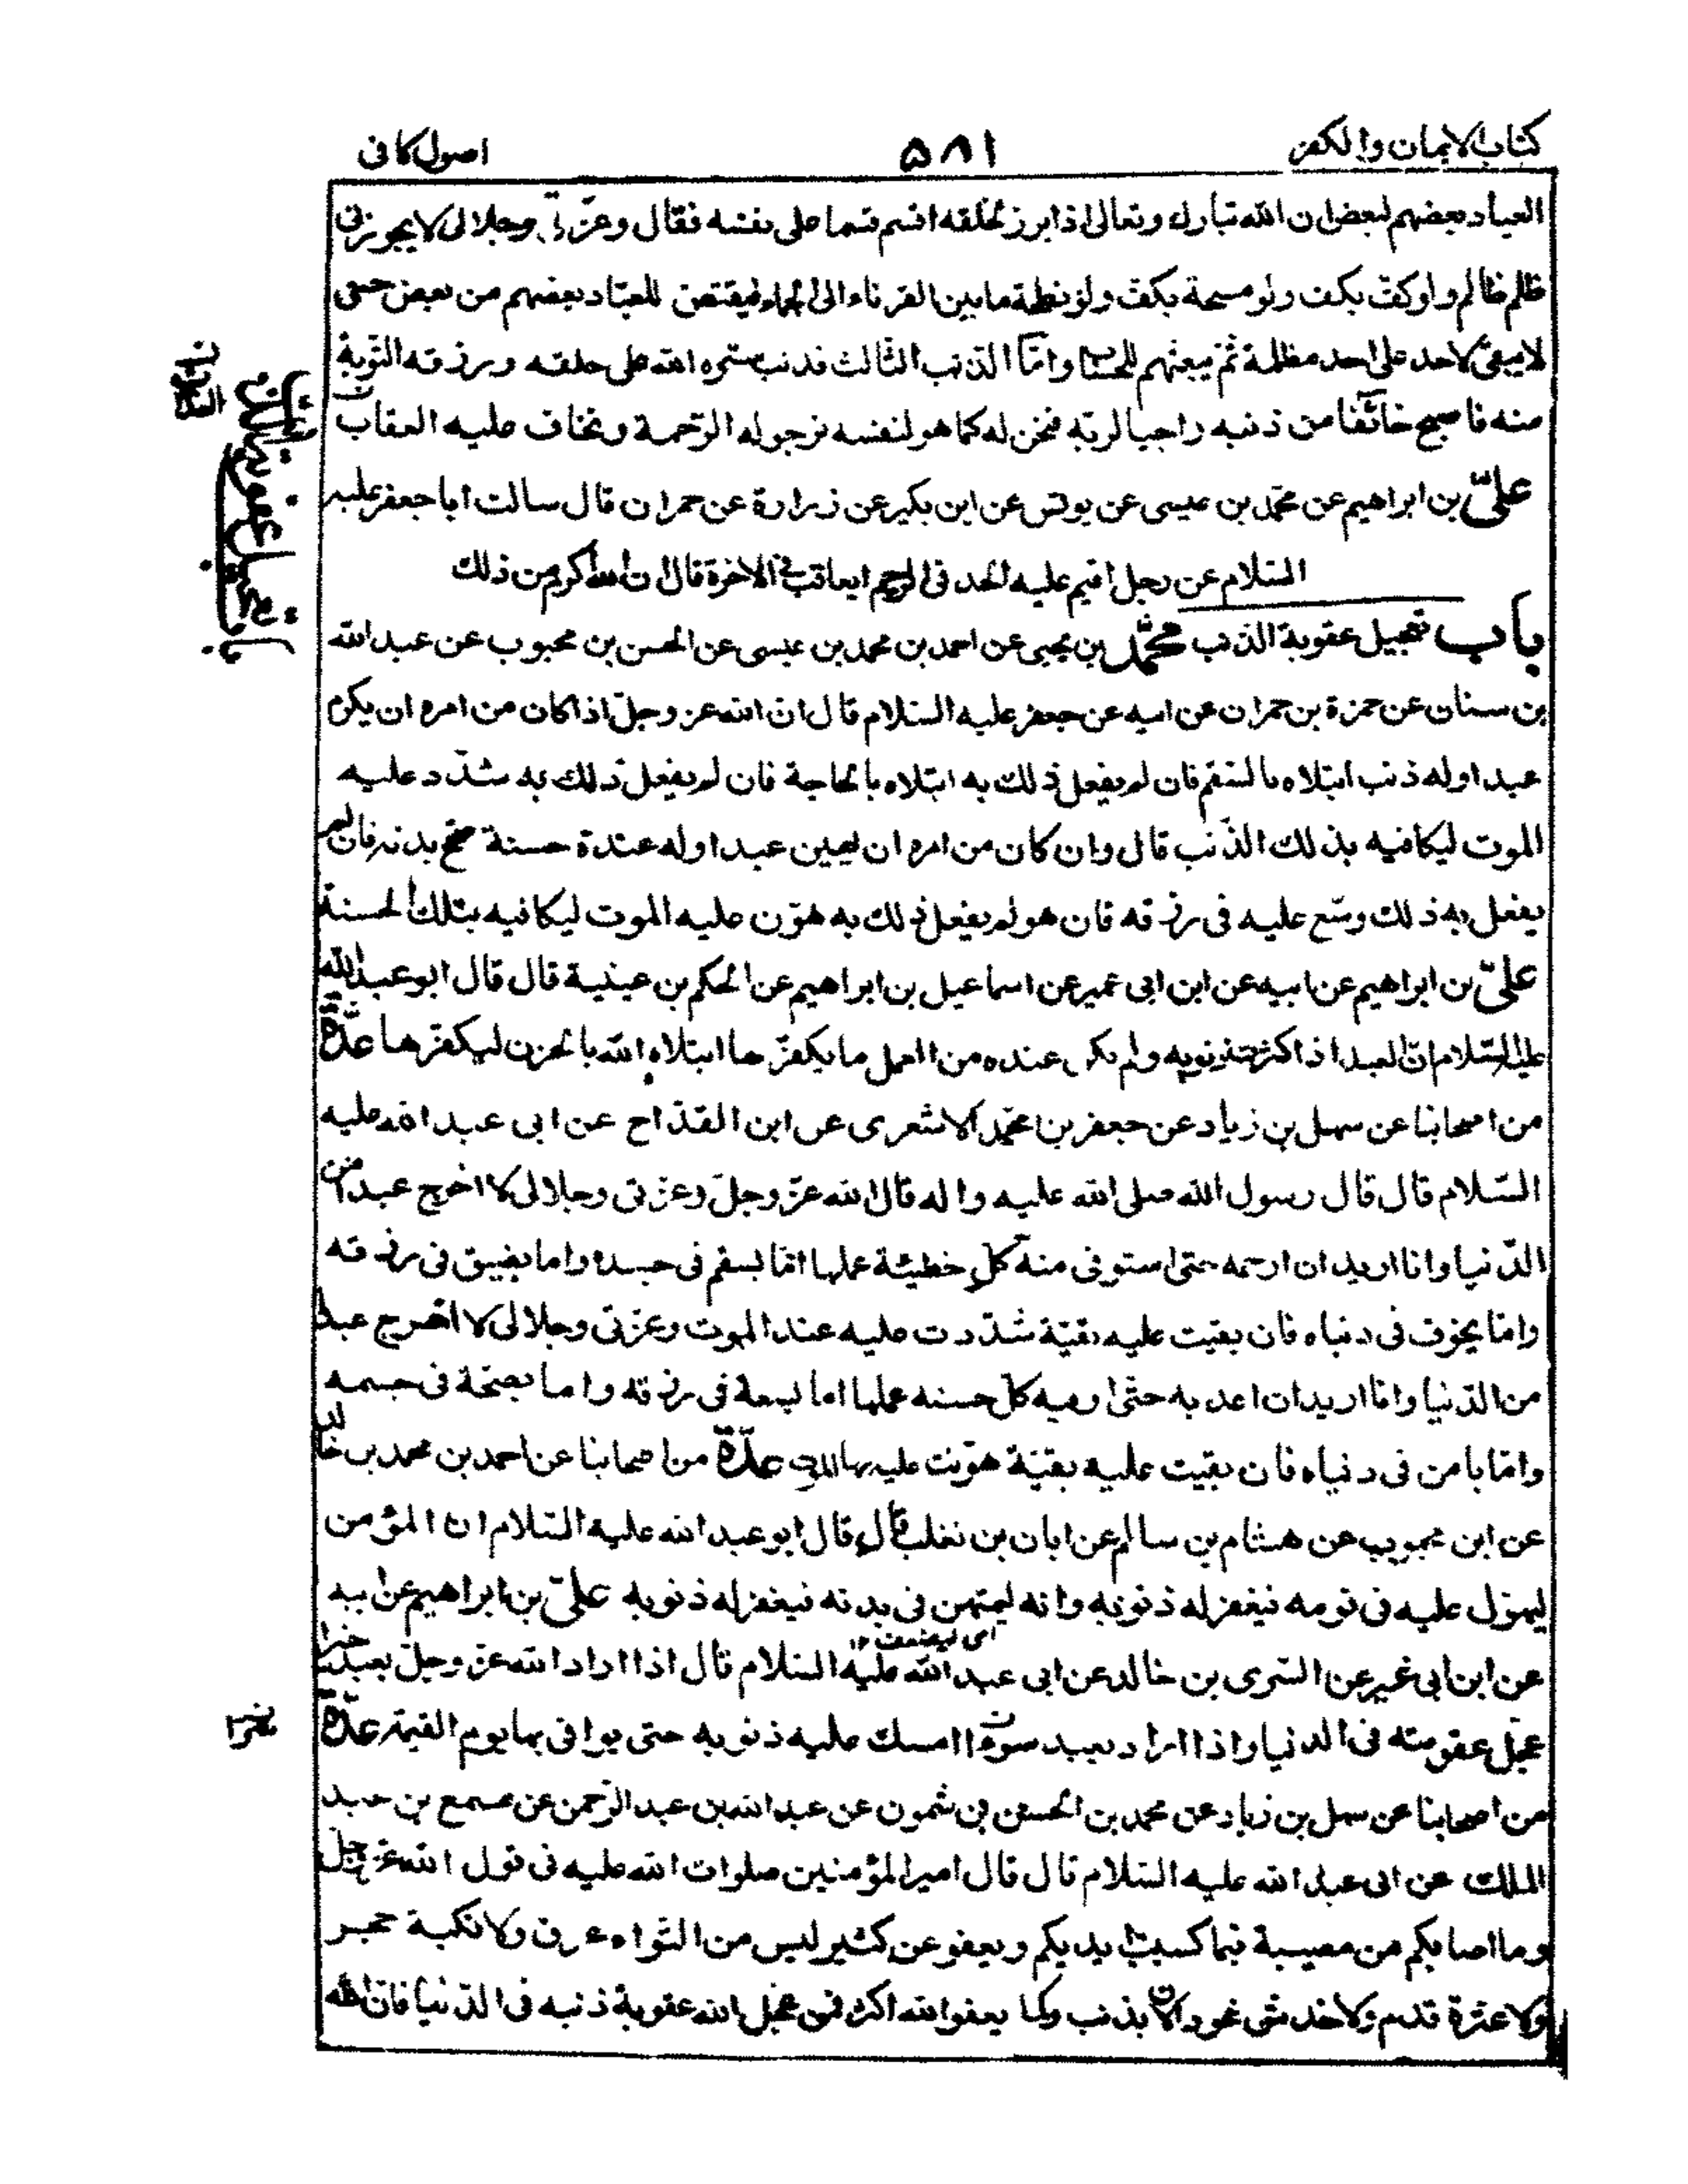 كتاب الايمان والكفر ٥٨١ اصول كافى
العباد بعضهم لبعض ان الله تبارك وتعالى اذا برز لخلقه اقسم قسما على نفسه فقال وعزتى وجلالى لا يجوزنى
ظلم ظالم ولو كفّ بكف ولو مسحة بكف ولو نطحة ما بين القرناء الى الجماء فيقتص للعباد بعضهم من بعض حتى
لا يبقى لاحد على احد مظلمة ثم يبعثهم للحساب وامّا الذنب الثالث فذنب ستره الله على خلقه ورزقه التّوبة
منه فاصبح خائفا من ذنبه راجيا لربّه فنحن له كما هو لنفسه نرجو له الرّحمة ونخاف عليه العقاب
علىّ بن ابراهيم عن محمّد بن عيسى عن يونس عن ابن بكير عن زرارة عن حمران قال سالت ابا جعفر عليه
السّلام عن رجل اقيم عليه الحد فى الرجم ايعاقب فى الاخرة قال ان الله اكرم من ذلك
باب تعجيل عقوبة الذنب محمّد بن يحيى عن احمد بن محمد بن عيسى عن الحسن بن محبوب عن عبد الله
بن سنان عن حمزة بن حمران عن ابيه عن جعفر عليه السّلام قال ان الله عز وجلّ اذا كان من امره ان يكرم
عبدا وله ذنب ابتلاه بالسقم فان لم يفعل ذلك به ابتلاه بالحاجة فان لم يفعل ذلك به شدّد عليه
الموت ليكافيه بذلك الذّنب قال وان كان من امره ان يهين عبدا وله عنده حسنة صحّح بدنه فان لم
يفعل به ذلك وسّع عليه فى رزقه فان هو لم يفعل ذلك به هوّن عليه الموت ليكافيه بتلك الحسنة
علىّ بن ابراهيم عن ابيه عن ابن ابى عمير عن اسماعيل بن ابراهيم عن الحكم بن عيتبة قال قال ابو عبد الله
عليه السّلام انّ العبد اذا كثرت ذنوبه ولم يكن عنده من العمل ما يكفّرها ابتلاه الله بالحزن ليكفّرها عدّة
من اصحابنا عن سهل بن زياد عن جعفر بن محمّد الاشعرى عن ابن القدّاح عن ابى عبد الله عليه
السّلام قال قال رسول الله صلى الله عليه واله قال الله عزّ وجلّ وعزّتى وجلالى لا اخرج عبدا من
الدّنيا وانا اريد ان ارحمه حتى استوفى منه كلّ خطيئة عملها امّا بسقم فى جسده واما بضيق فى رزقه
وامّا بخوف فى دنياه فان بقيت عليه بقيّة شدّدت عليه عند الموت وعزّتى وجلالى لا اخرج عبدا
من الدّنيا وانا اريد ان اعذبه حتّى اوفيه كلّ حسنه عملها اما بسعة فى رزقه واما بصحّة فى جسمه
وامّا بامن فى دنياه فان بقيت عليه بقيّة هوّنت عليه بها عدّة من اصحابنا عن احمد بن محمد بن خالد
عن ابن محبوب عن هشام بن سالم عن ابان بن تغلب قال قال ابو عبد الله عليه السّلام ان المؤمن
ليهوّل عليه فى نومه فيغفر له ذنوبه وانه ليمتهن فى بدنه فيغفر له ذنوبه علىّ بن ابراهيم عن ابيه
عن ابن ابى عمير عن السّرى بن خالد عن ابى عبد الله عليه السّلام قال اذا اراد الله عز وجلّ بعبد خيرا
عجّل عقوبته فى الدنيا واذا اراد بعبد سوءا امسك عليه ذنوبه حتى يوافى بها يوم القيمة عدّة
من اصحابنا عن سهل بن زياد عن محمد بن الحسن بن شمون عن عبد الله بن عبد الرّحمن عن مسمع بن عبد
الملك عن ابى عبد الله عليه السّلام قال قال امير المؤمنين صلوات الله عليه فى قول الله عز وجل
وما اصابكم من مصيبة فبما كسبت ايديكم ويعفو عن كثير ليس من التواء عرق ولا نكبة حجر
ولا عثرة قدم ولا خدش عود الّا بذنب ولما يعفو الله اكثر فمن عجّل الله عقوبة ذنبه فى الدّنيا فان الله